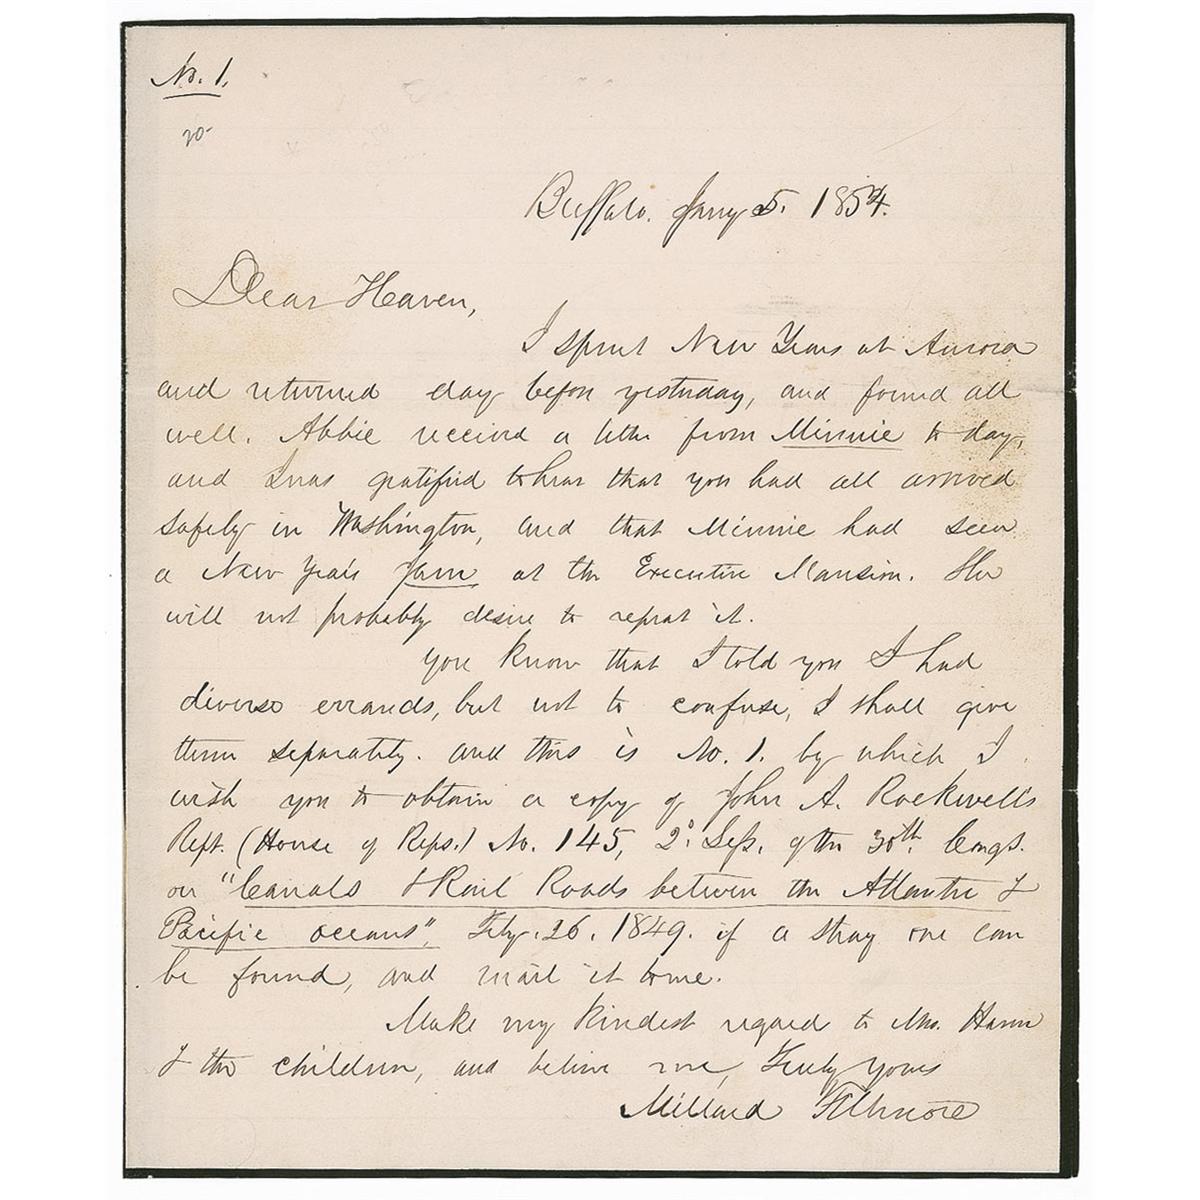 No. 1.
20-
Buffalo. Jany 5. 1854.
Dear Haven,
I spent New Years at Aurora
and returned day before yesterday, and found all
well. Abbie received a letter from Minnie to day,
and I was gratified to hear that you had all arrived
safely in Washington, and that Minnie had seen
a New Year's Jam at the Executive Mansion. She
will not probably desire to repeat it.
You know that I told you I had
diverse errands, but not to confuse, I shall give
them separately. and this is No. 1. by which I
wish you to obtain a copy of John A. Rockwell's
Rept. (House of Reps.) No. 145, 2d. Sess. of the 30th. Congs.
on "Canals & Rail Roads between the Atlantic &
Pacific oceans", Feby. 26. 1849. if a stray one can
be found, and mail it to me.
Make my kindest regard to Mrs. Haven
& the children, and believe me, Truly Yours
Millard Fillmore